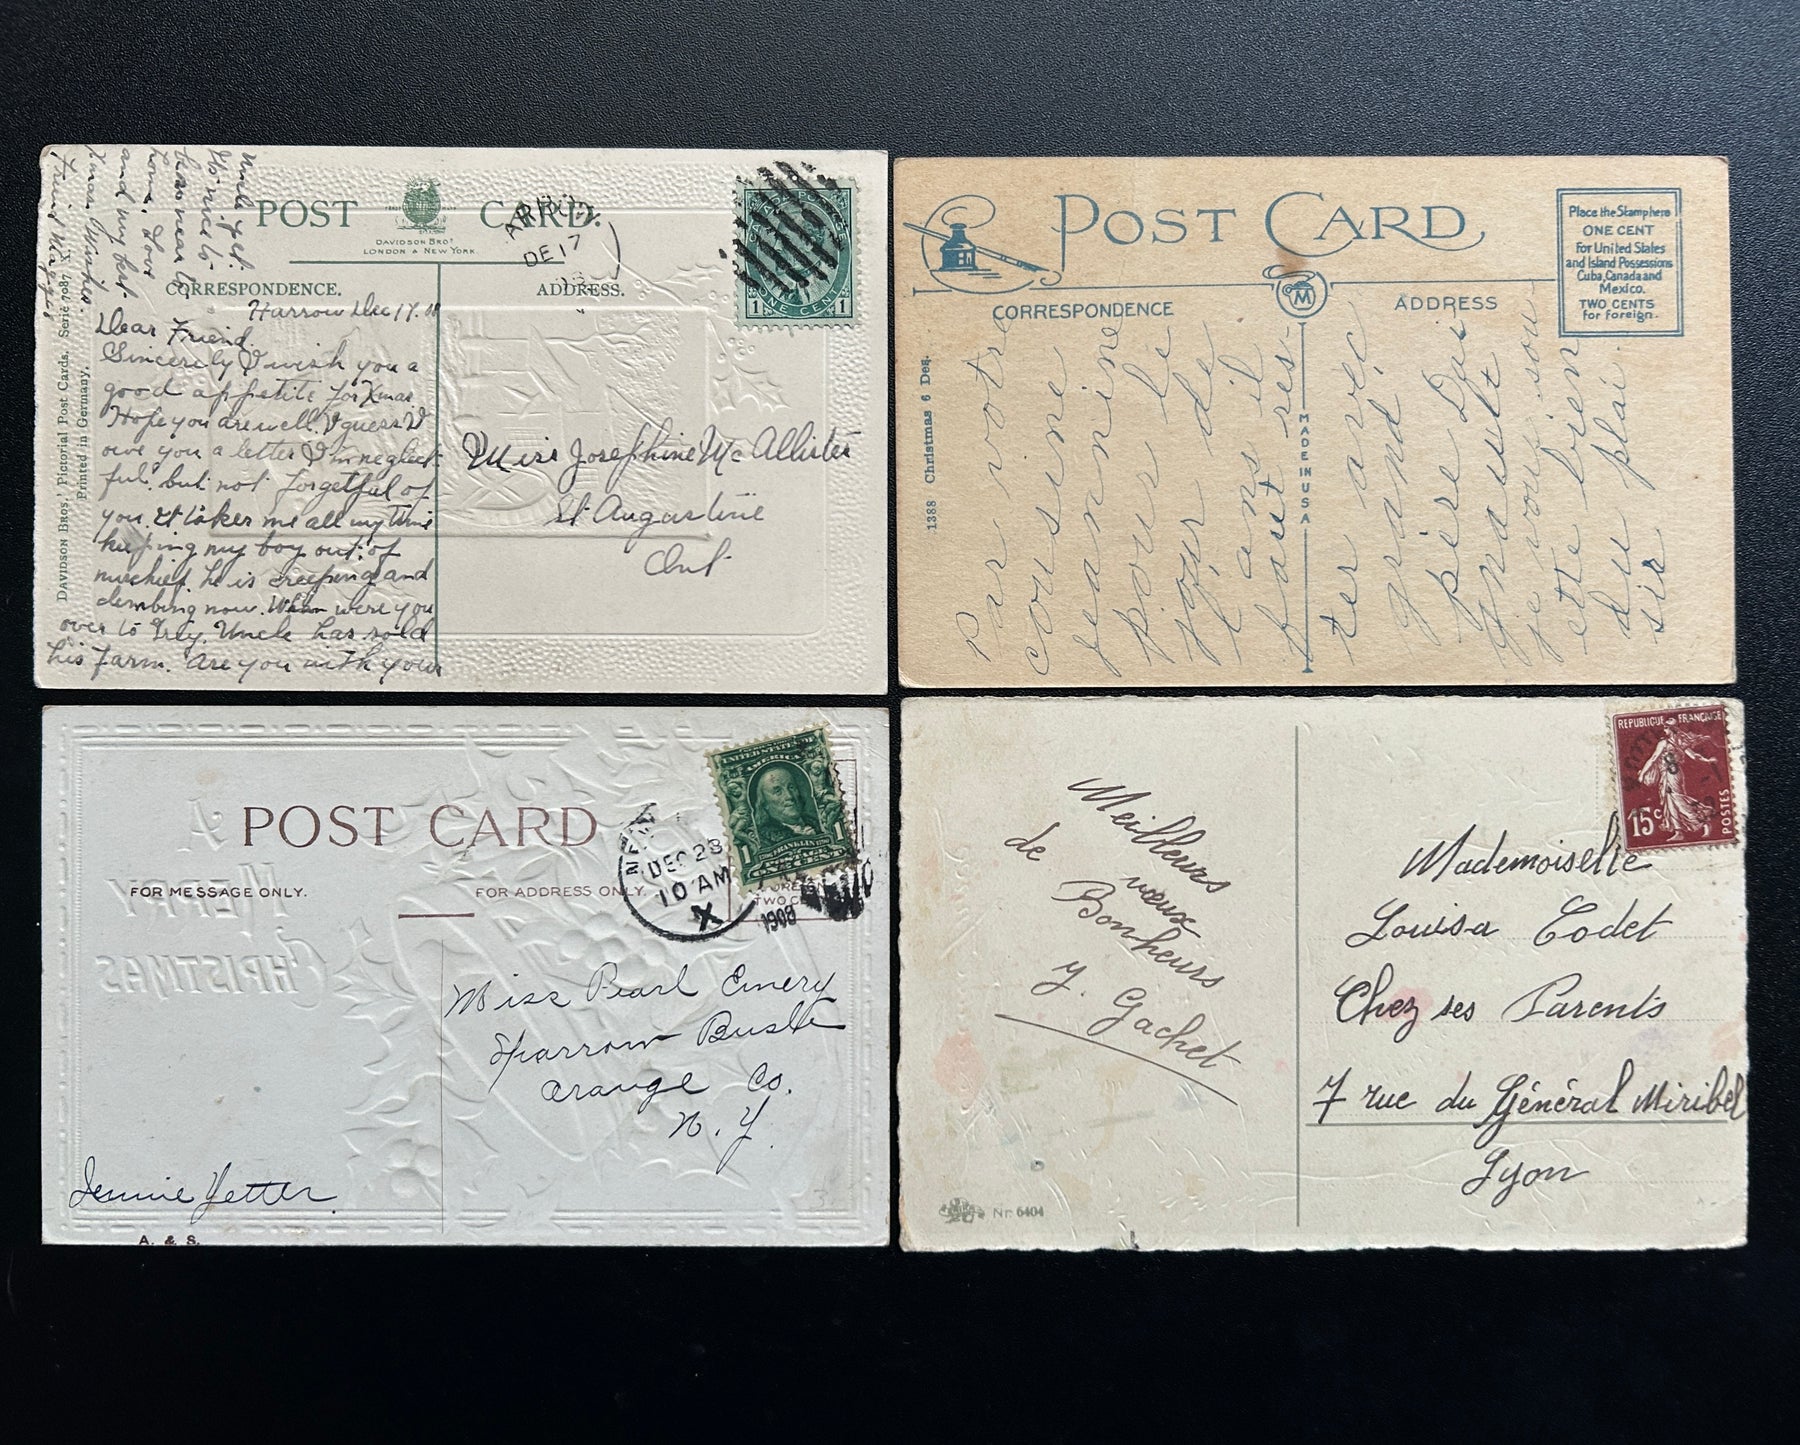 POST CARD.
DAVIDSON BROS
LONDON & NEW YORK.
CORRESPONDENCE.
ADDRESS.
DAVIDSON BROS.' Pictorial Post Cards. Serie 7087 X.
Printed in Germany.
HARROW
DE 17
ONE CENT
1 1
Harrow Dec 17. 08
Dear Friend.
Sincerely I wish you a
good appetite for Xmas
Hope you are well. I guess I
owe you a letter I'm neglect
ful. but not forgetful of
you. It takes me all my time
keeping my boy out of
mischief he is creeping and
climbing now. When were you
over to Uncle has sold
his farm. Are you with your
Uncle yet.
It's nice to
have near to
home. Love
and my best
Xmas Wishes.
Friend
Miss Josephine McAllister
St Augustine
Ont
POST CARD
CORRESPONDENCE
ADDRESS
M
Place the Stamp here
ONE CENT
For United States
and Island Possessions
Cuba, Canada and
Mexico.
TWO CENTS
for foreign.
1388 Christmas 6 Des.
MADE IN USA
Par votre
cousine
jeannine
pour le
jour de
l ans il
faut res-
ter avec
grand
père Dui
gnasult
je vous sou
ette bien
du plai
sir
POST CARD
FOR MESSAGE ONLY.
FOR ADDRESS ONLY.
A MERRY CHRISTMAS
DEC 23
10 AM
1908
X
UNITED STATES OF
AMERICA
FRANKLIN
1
ONE CENT
TWO
Miss Pearl Emery
Sparrow Bush
Orange Co.
N. Y.
Jennie Yetter
A. & S.
REPUBLIQUE FRANÇAISE
15c
POSTES
Meilleurs
vœux
de
Bonheurs
Y. Gachet
Mademoiselle
Louisa Codet
Chez ses Parents
7 rue du Général Miribel
Lyon
Nr. 6404